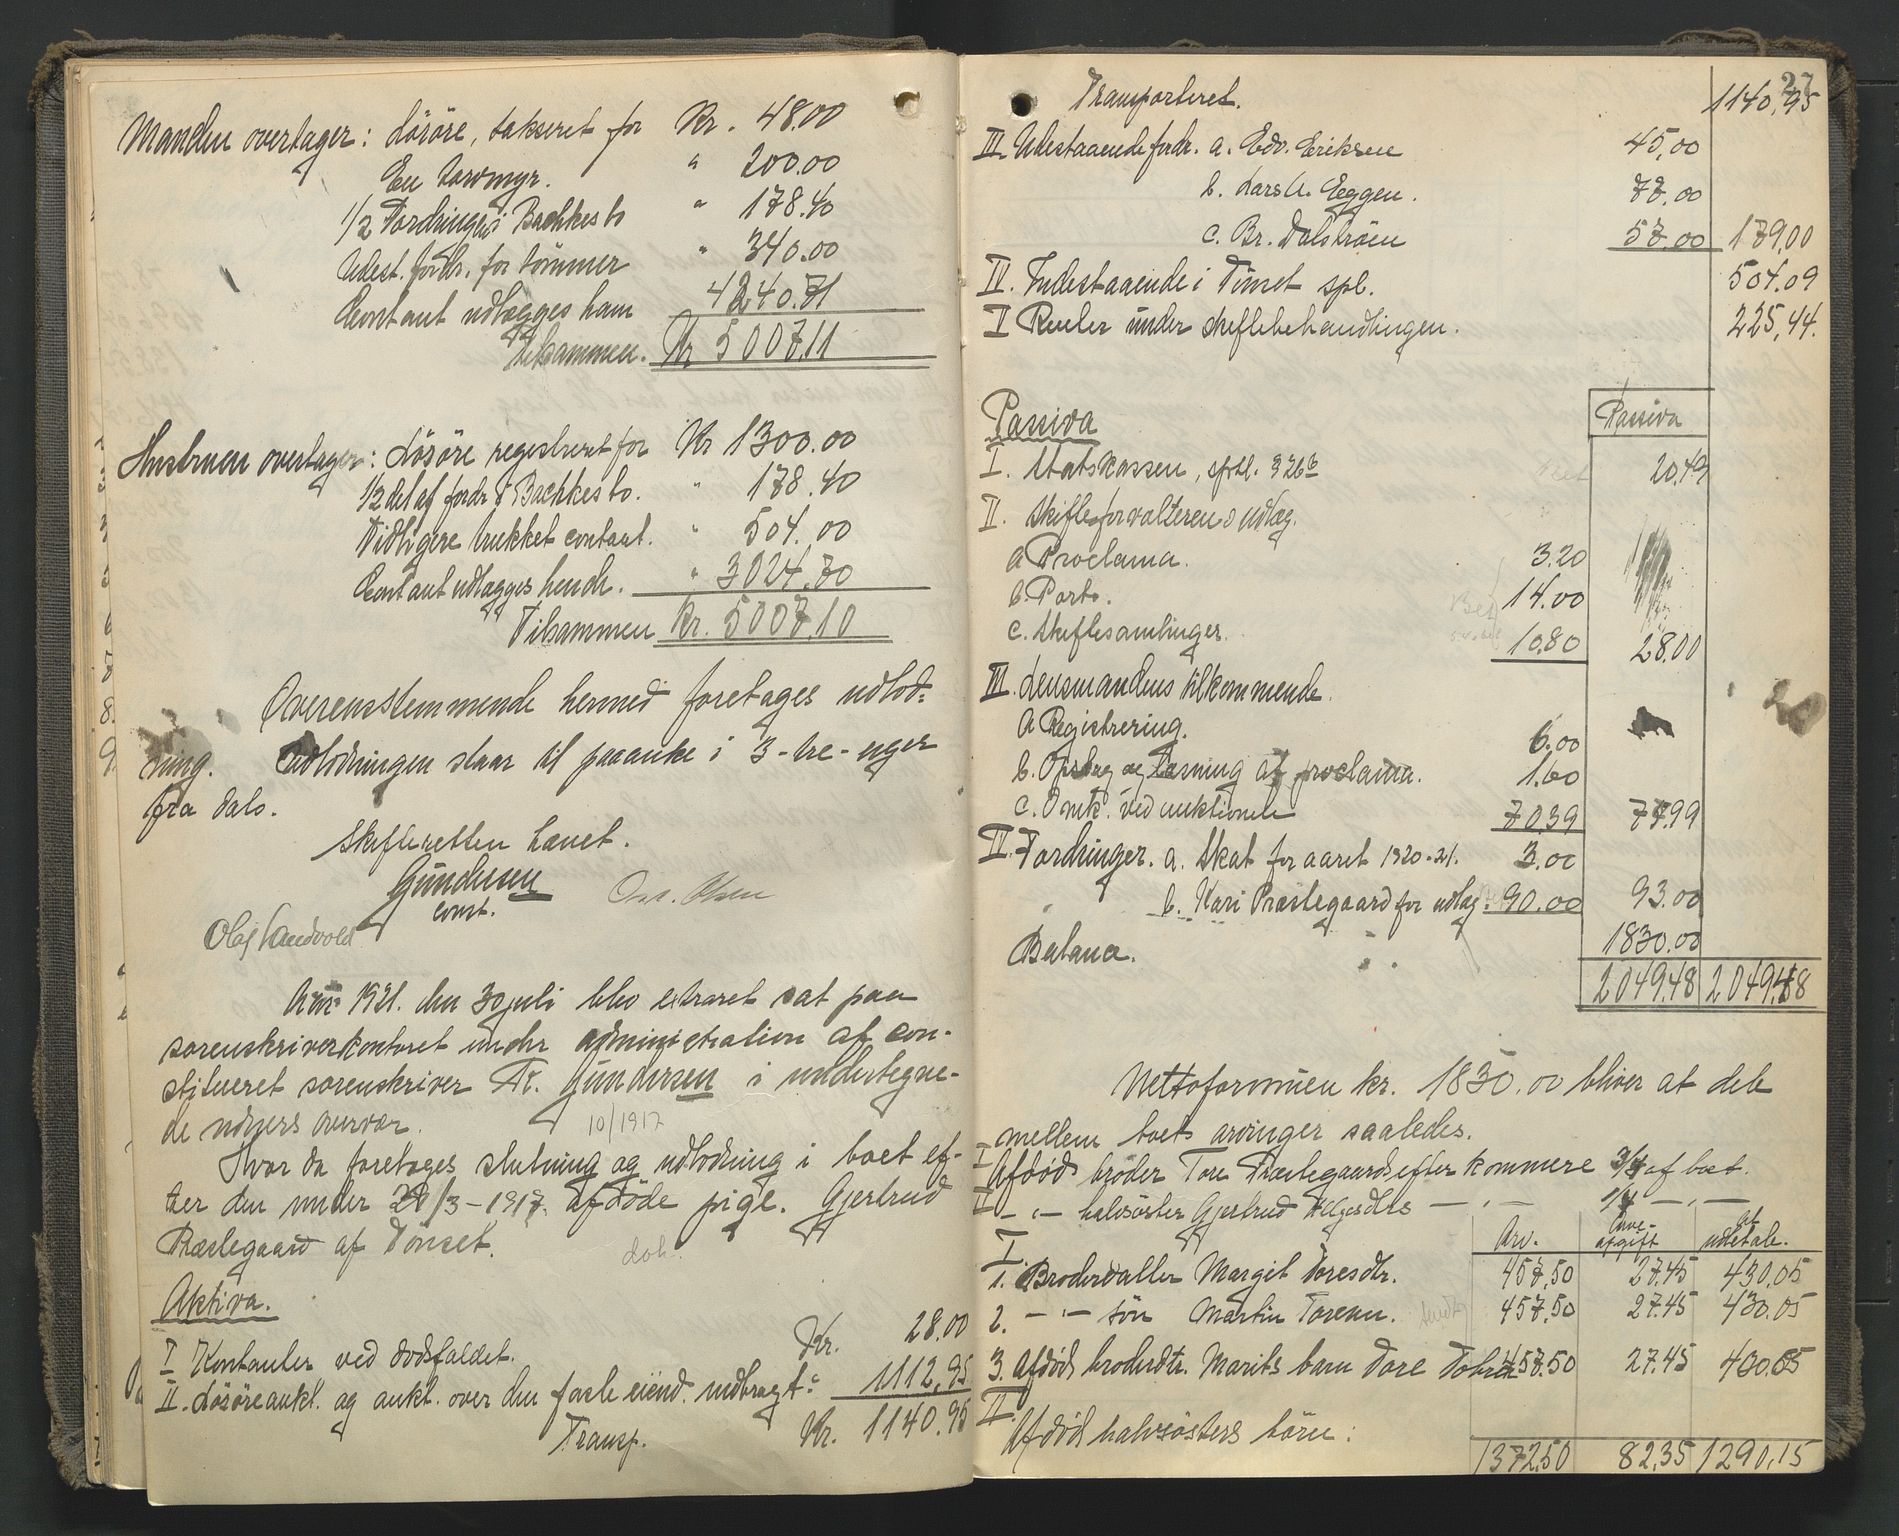 Manden overtager: Løsøre, takseret for Kr. 48.00
En torvmyr. " 200.00
1/2 Fordringen i Bachkesbo " 178.40
Udest. fordr. for tømmer " 340.00
Contant udlægges ham 4240.71
Tilsammen. Kr 5007.11
Hustruen overtager: Løsøre registreret for Kr 1300.00
1/2 del af fordr i Bachkesbo. " 178.40
Tidligere trukket contant. " 504.00
Contant udlægges hende. " 3024.70
Tilsammen Kr. 5007.10
Overensstemmende hermed foretages udlod-
ning. Udlodningen staar til paaanke i 3-tre-uger
fra dato.
Skifteretten hævet.
Gundersen
const.
Olaf Sandvold
Osc. Olsen
Aar 1921. den 30 juli blev extraret sat paa
sorenskriverkontoret under administration af con-
stitueret sorenskriver Fr. Gundersen i undertegne-
de vidners overvær.
10/1917
Hvor da foretoges slutning og udlodning i boet ef-
ter den under 29/3-1917 afdøde pige. Gjertrud
Præstegaard af Tønset.
dok.
Aktiva.
I Kontanter ved dødsfaldet. Kr. 28.00
II. Løsøreaukt. og aukt. over den faste eiend. indbragt: 1112,95
Transp. Kr. 1140.95
27
Transporteret. 1140,95
III. Udestaaende fordr. a. Edv. Eriksen 45,00
b. Lars A. Eggen. 77.00
c. Br. Dalstrøm 57.00 179.00
IV. Indestaaende i Tönset spb. 504.09
V Renter under skiftebehandlingen. 225,44.
Passiva
Passiva
I. Statskassen, sprtl. § 26 b 20.49
II. Skifteforvalterens udlæg.
a Proclama. 3.20
b. Porto. 14.00
c. Skiftesamlinger. 10.80 28.00
III. Lensmandens tilkommende.
a Registrering. 6.00
b. Opslag og læsning af proclama. 1.60
c. Omk. ved auktionen 70.39 77.99
IV. Fordringer. a. Skat for aaret 1920-21. 3.00
b. Kari Præstegaard for udlæg. 90.00 93.00
Balance. 1830.00
2049.48 2049.48
Nettoformuen kr. 1830.00 bliver at dele
mellem boets arvinger saaledes.
I Afdøds broder Tore Præstegaards efterkommere 3/4 af boet.
II -"- halvsøster Gjertrud Helgesdtrs -"- 1/4 -"-
Arv. Arve-afgift At udbetale.
I
1. Broderdatter Margit Toresdtr. 457,50 27.45 430.05
2. -"- søn Martin Toresen. 457.50 27.45 430.05
3. Afdøds broderdtr. Marits barn Tore 457.50 27.45 430.05
II
Afdøds halvsøsters børn:
1372.50 82.35 1290.15